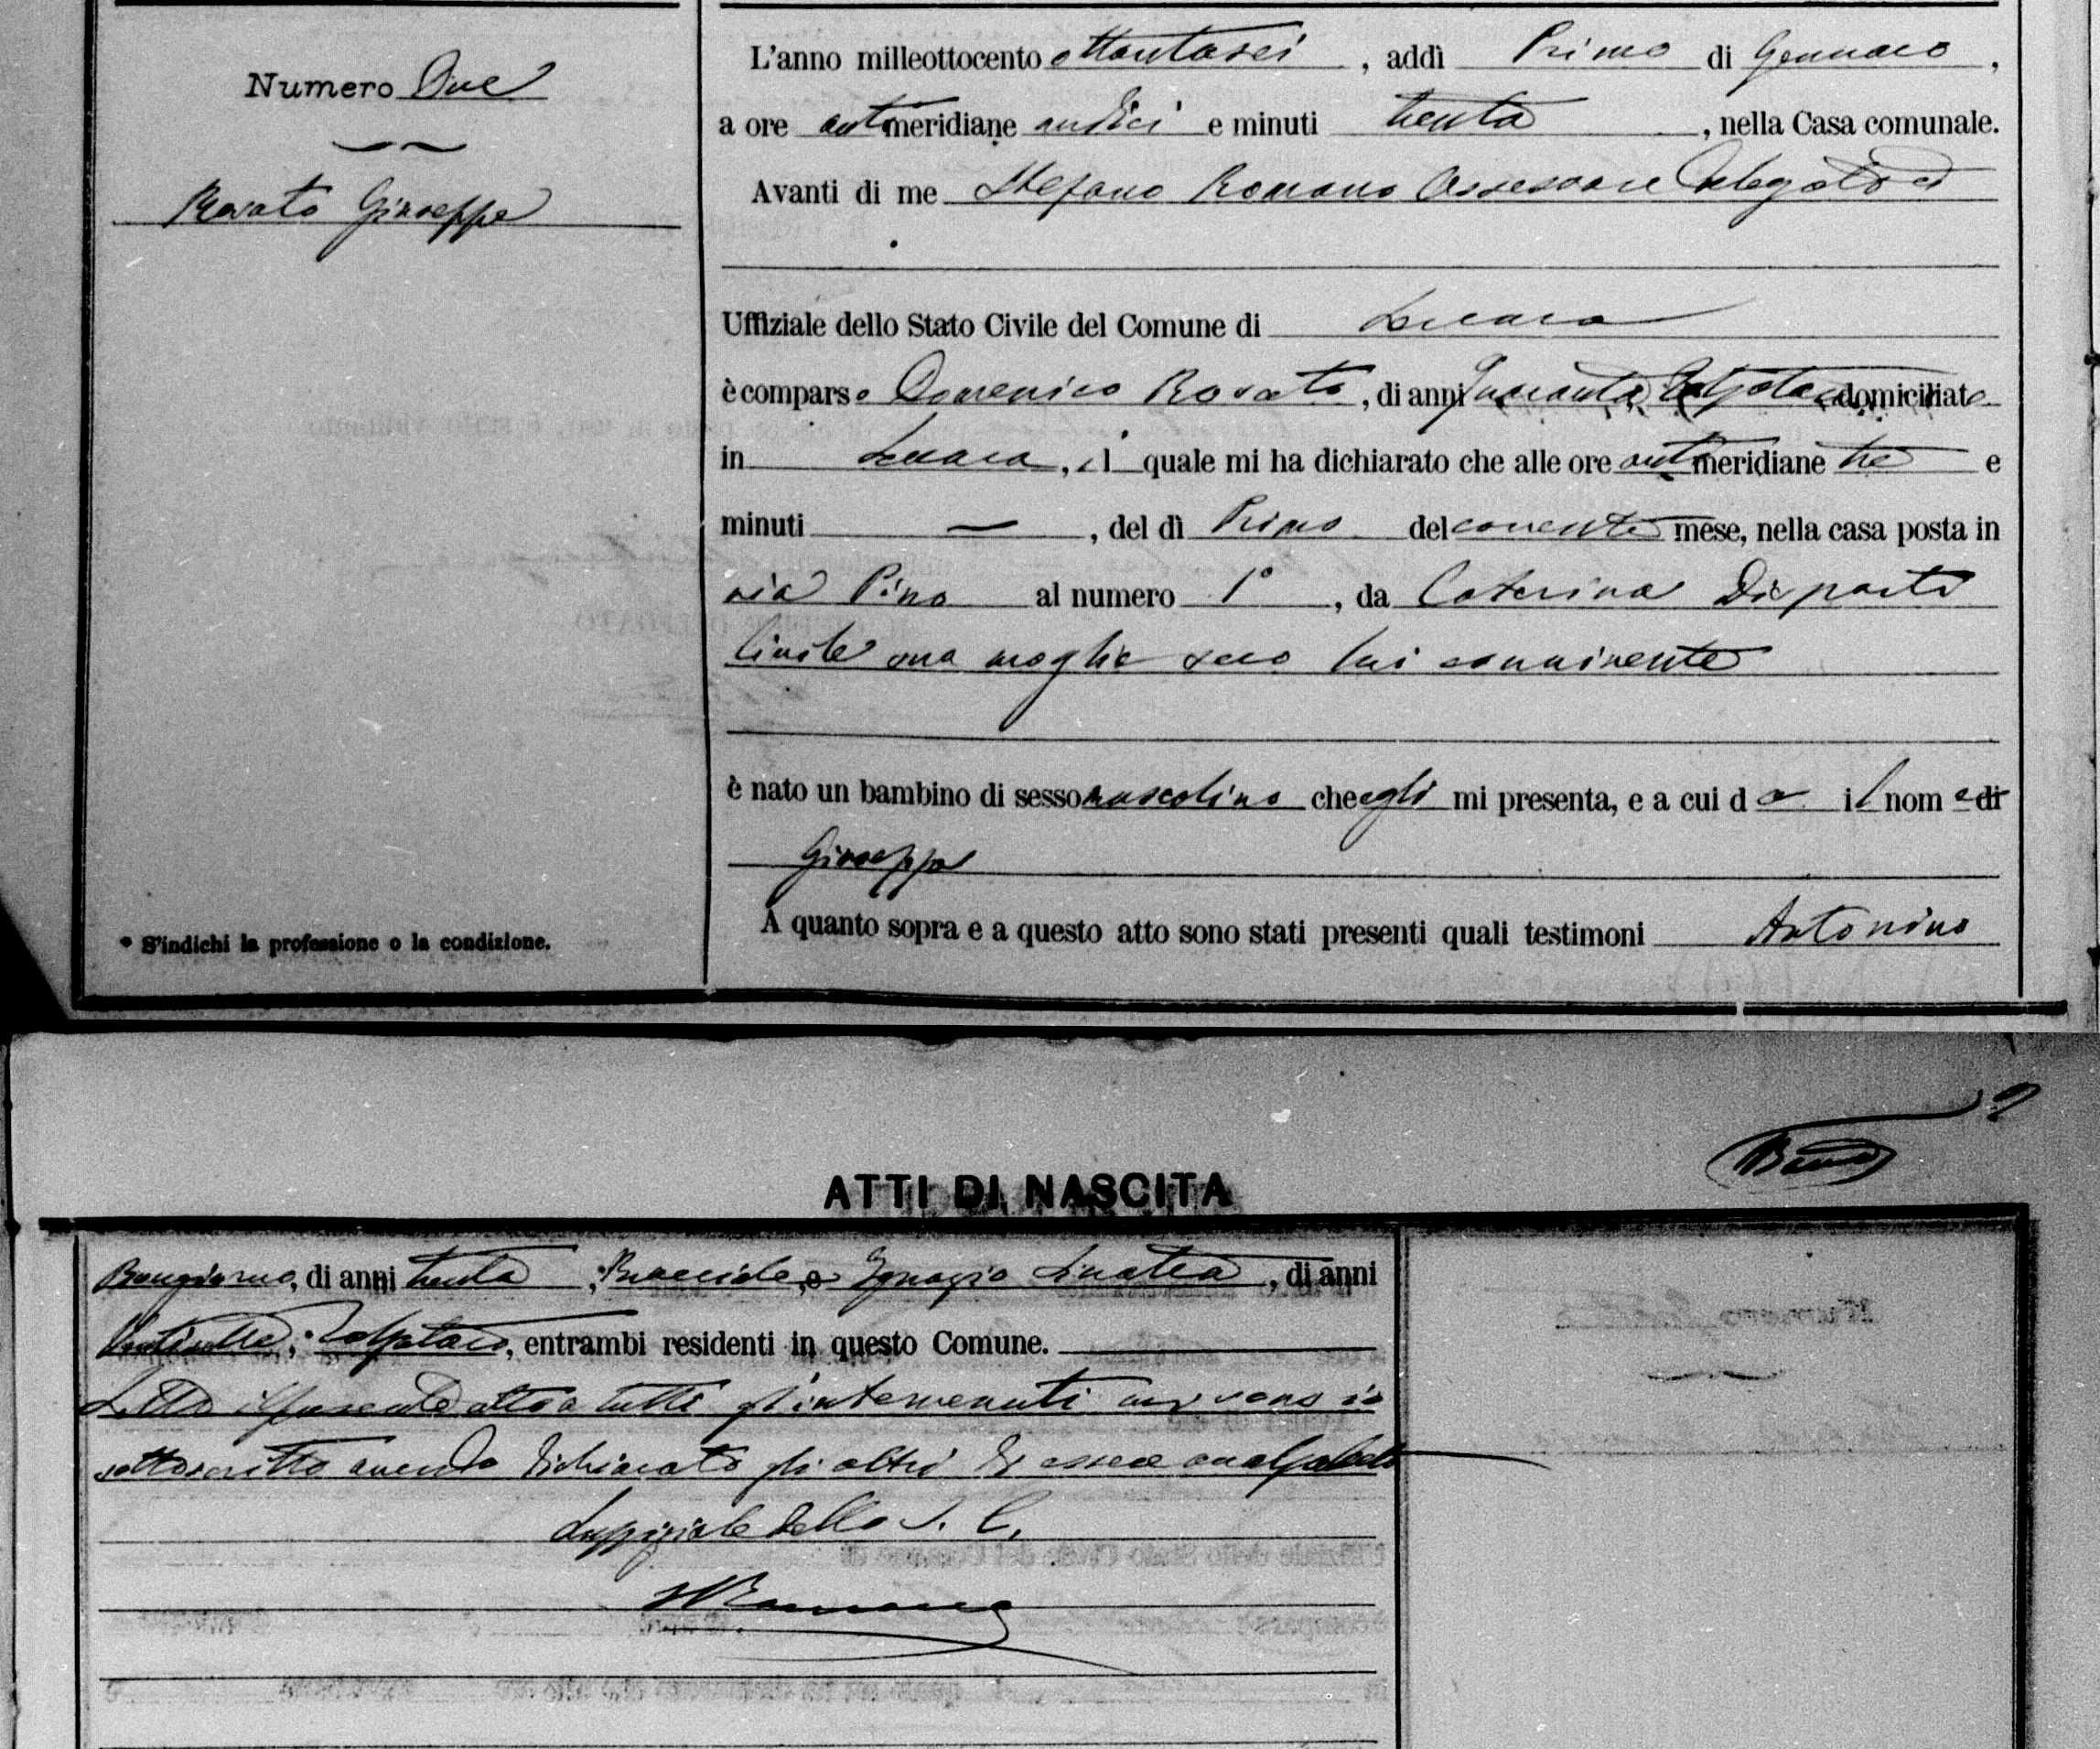 Numero Due
Rosato Giuseppe
* S'indichi la professione o la condizione.
L'anno milleottocento ottantasei, addì Primo di Gennaro,
a ore antimeridiane undici e minuti trenta, nella Casa comunale.
Avanti di me Stefano Romano Assessore Delegato
Uffiziale dello Stato Civile del Comune di Lercara
è comparso Domenico Rosato, di anni quaranta Zolfataro domiciliato
in Lercara, il quale mi ha dichiarato che alle ore antimeridiane tre e
minuti —, del dì Primo del corrente mese, nella casa posta in
via Pino al numero 1°, da Caterina Disparti
Civile sua moglie seco lui convivente
è nato un bambino di sesso mascolino che egli mi presenta, e a cui dà il nome di
Giuseppe
A quanto sopra e a questo atto sono stati presenti quali testimoni Antonino
ATTI DI NASCITA
Bongiorno, di anni trenta, Bracciale, e Ignazio, di anni
Zolfataro, entrambi residenti in questo Comune.
Letto il presente atto a tutti gl'intervenuti io
sottoscritto avendo dichiarato gli altri di essere analfabeti
L'uffiziale dello S. C.
SRomano